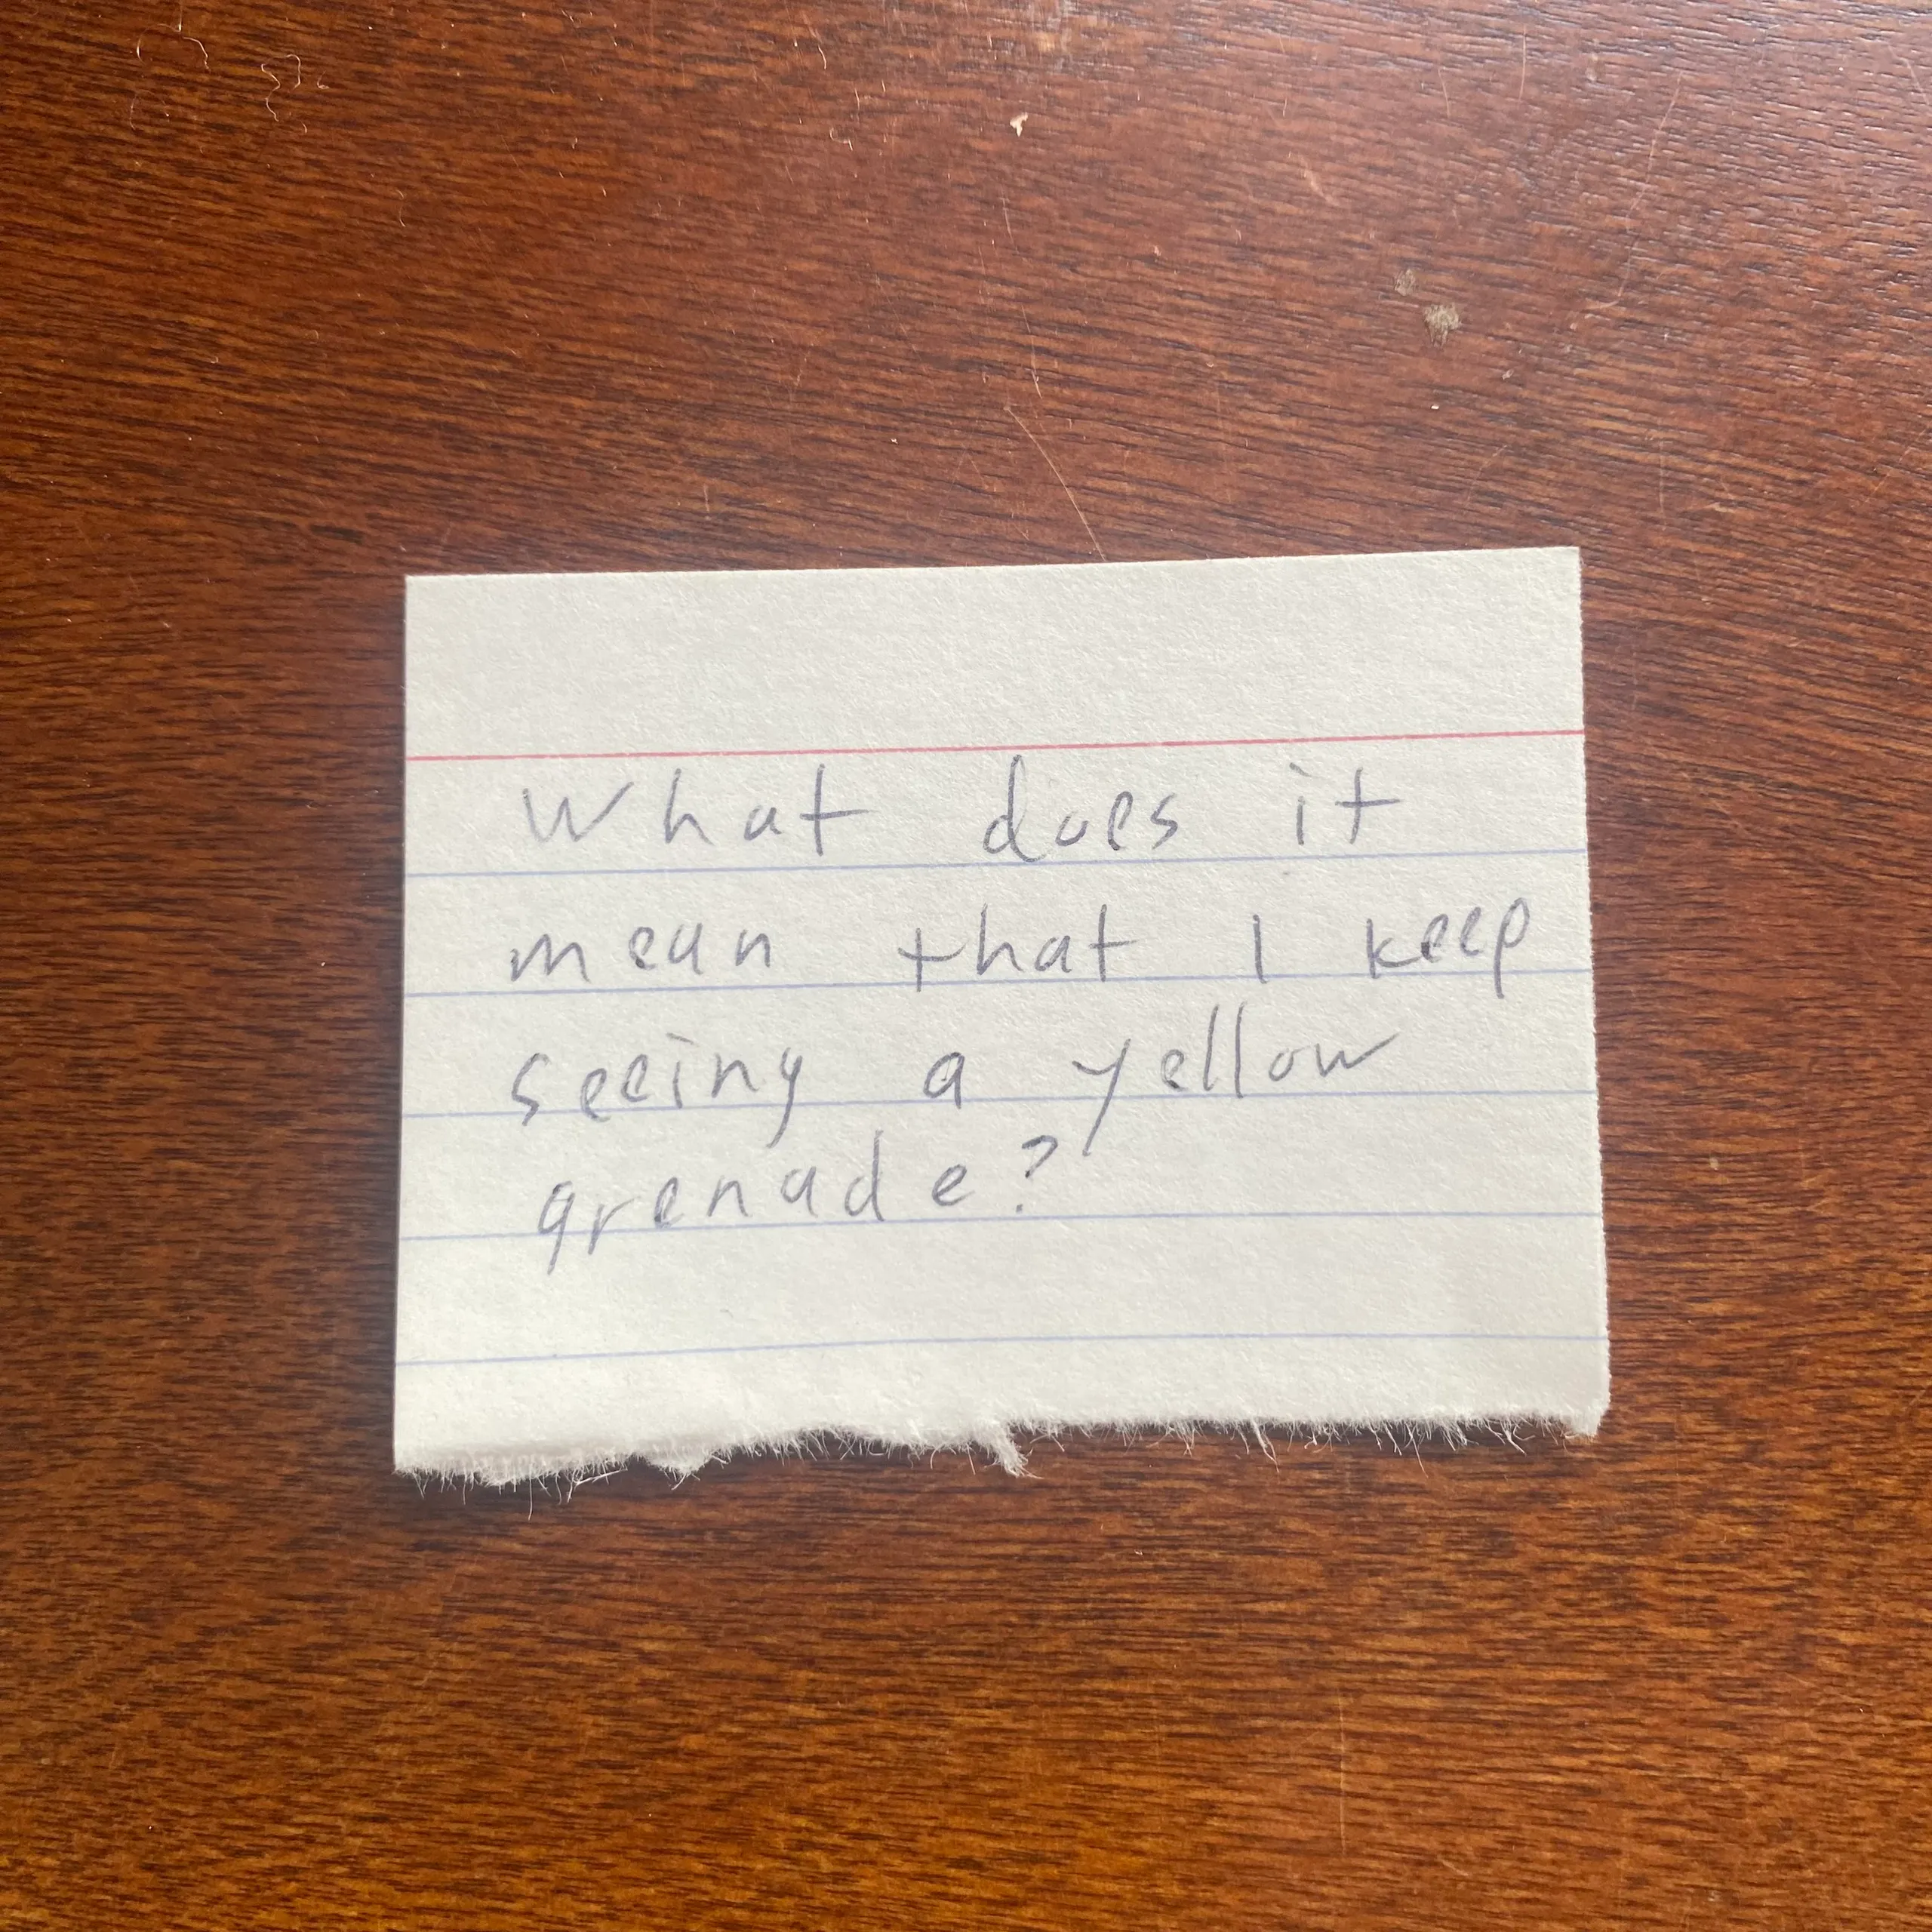 What does it
mean that I keep
seeing a yellow
grenade?